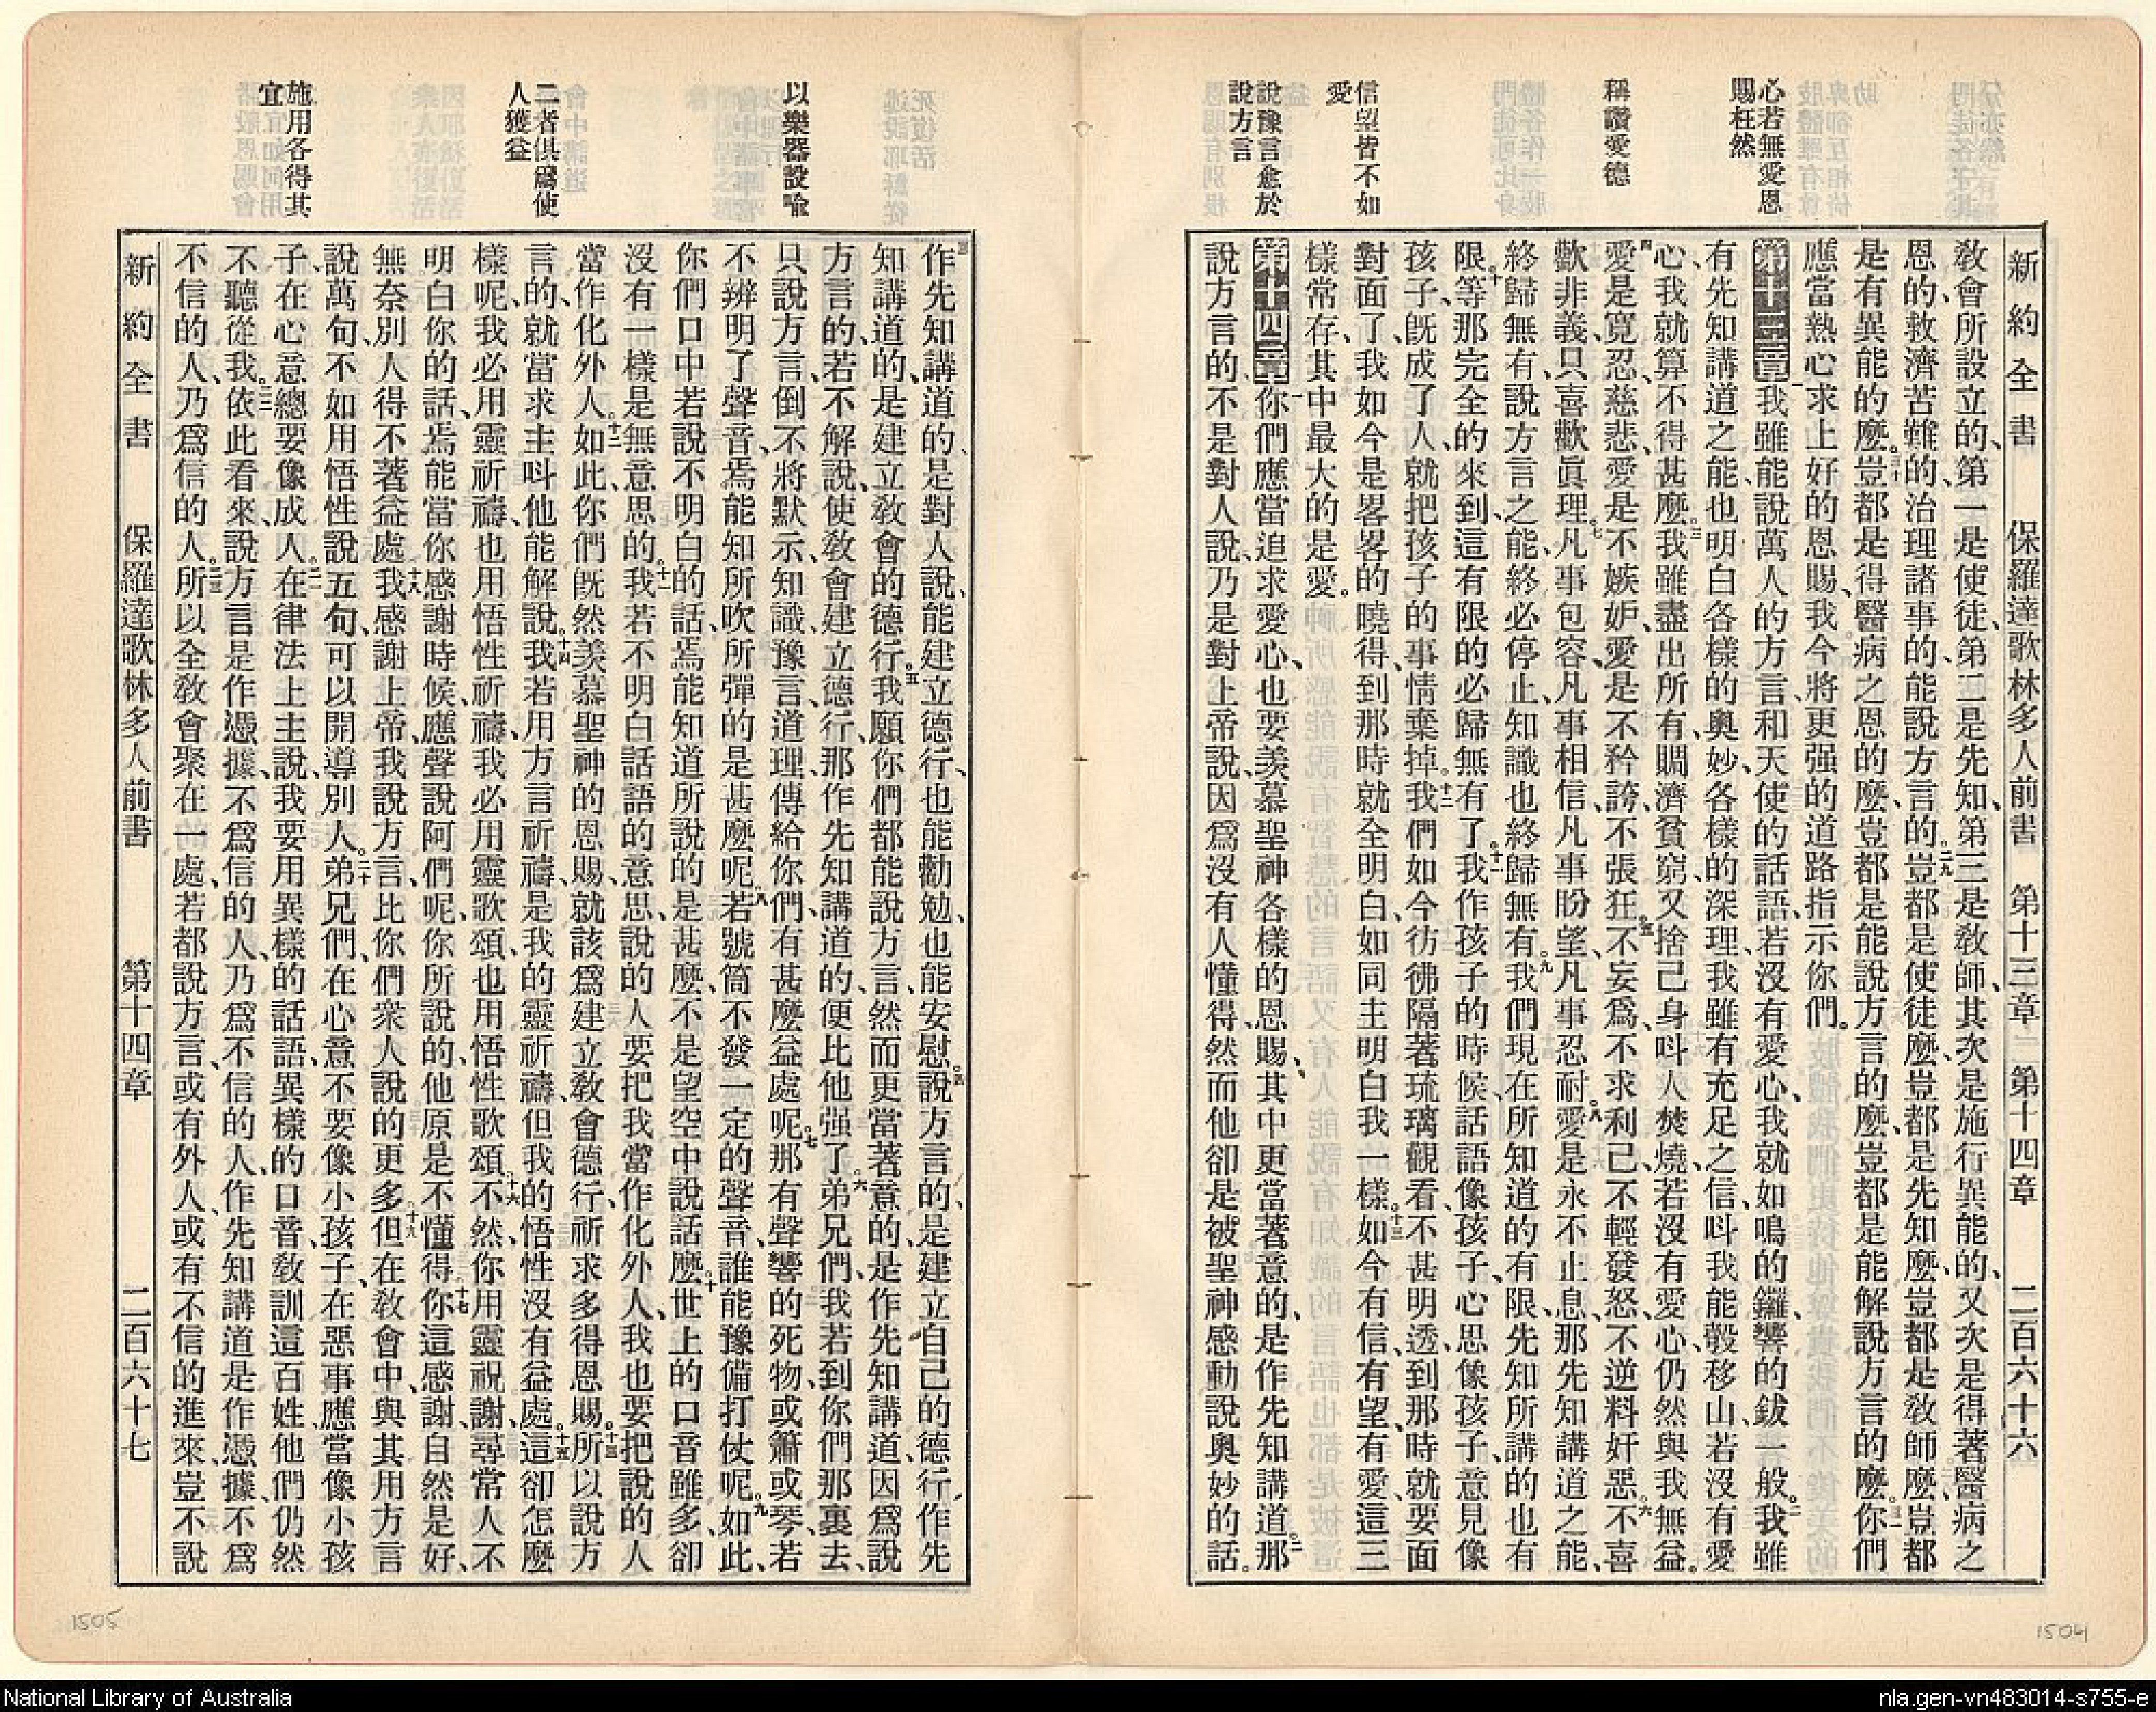 心若無愛恩
賜枉然
稱讚愛德
信望皆不如
愛
說豫言愈於
說方言
新約全書 保羅達歌林多人前書 第十三章 第十四章 二百六十六
敎會所設立的、第一是使徒、第二是先知、第三是敎師、其次是施行異能的、又次是得著醫病之
恩的、救濟苦難的、治理諸事的、能說方言的。二九豈都是使徒麼、豈都是先知麼、豈都是敎師麼、豈都
是有異能的麼。三十豈都是得醫病之恩的麼、豈都是能說方言的麼、豈都是能解說方言的麼。三一你們
應當熱心求上好的恩賜、我今將更强的道路指示你們。
第十三章 一我雖能說萬人的方言、和天使的話語、若沒有愛心、我就如鳴的鑼、響的鈸一般。二我雖
有先知講道之能、也明白各樣的奧妙、各樣的深理、我雖有充足之信、呌我能彀移山、若沒有愛
心、我就算不得甚麼。三我雖盡出所有、賙濟貧窮、又捨己身呌人焚燒、若沒有愛心、仍然與我無益。
四愛是寬忍、慈悲、愛是不嫉妒、愛是不矜誇、不張狂。五不妄爲、不求利己、不輕發怒、不逆料奸惡。六不喜
歡非義、只喜歡眞理。七凡事包容、凡事相信、凡事盼望、凡事忍耐。八愛是永不止息、那先知講道之能、
終歸無有、說方言之能、終必停止、知識也終歸無有。九我們現在所知道的有限、先知所講的也有
限。十等那完全的來到、這有限的必歸無有了。十一我作孩子的時候、話語像孩子、心思像孩子、意見像
孩子、旣成了人、就把孩子的事情棄掉。十二我們如今彷彿隔著琉璃觀看、不甚明透、到那時就要面
對面了、我如今是畧畧的曉得、到那時就全明白、如同主明白我一樣。十三如今有信、有望、有愛、這三
樣常存、其中最大的是愛。
第十四章 一你們應當追求愛心、也要羨慕聖神各樣的恩賜、其中更當著意的、是作先知講道。二那
說方言的、不是對人說、乃是對上帝說、因爲沒有人懂得、然而他卻是被聖神感動說奧妙的話。
以樂器設喩
二者俱爲使
人獲益
施用各得其
宜
三作先知講道的、是對人說、能建立德行、也能勸勉、也能安慰。四說方言的、是建立自己的德行、作先
知講道的、是建立敎會的德行。五我願你們都能說方言、然而更當著意的、是作先知講道、因爲說
方言的、若不解說、使敎會建立德行、那作先知講道的、便比他强了。六弟兄們、我若到你們那裏去、
只說方言、倒不將默示、知識、豫言、道理、傳給你們、有甚麼益處呢。七那有聲響的死物、或簫或琴、若
不辨明了聲音、焉能知所吹所彈的是甚麼呢。八若號筒不發一定的聲音、誰能豫備打仗呢。九如此、
你們口中若說不明白的話、焉能知道所說的是甚麼、不是望空中說話麼。十世上的口音雖多、卻
沒有一樣是無意思的。十一我若不明白話語的意思、說的人要把我當作化外人、我也要把說的人
當作化外人。十二如此、你們旣然羨慕聖神的恩賜、就該爲建立敎會德行、祈求多得恩賜。十三所以說方
言的、就當求主呌他能解說。十四我若用方言祈禱、是我的靈祈禱、但我的悟性沒有益處。十五這卻怎麼
樣呢、我必用靈祈禱、也用悟性祈禱、我必用靈歌頌、也用悟性歌頌。十六不然、你用靈祝謝、尋常人不
明白你的話、焉能當你感謝時候、應聲說阿們呢、你所說的、他原是不懂得。十七你這感謝、自然是好、
無奈別人得不著益處。十八我感謝上帝、我說方言、比你們衆人說的更多。十九但在敎會中、與其用方言
說萬句、不如用悟性說五句、可以開導別人。二十弟兄們、在心意不要像小孩子、在惡事應當像小孩
子、在心意總要像成人。二一在律法上主說、我要用異樣的話語、異樣的口音、敎訓這百姓、他們仍然
不聽從我。二二依此看來、說方言是作憑據、不爲信的人、乃爲不信的人、作先知講道是作憑據、不爲
不信的人、乃爲信的人。二三所以全敎會聚在一處、若都說方言、或有外人、或有不信的進來、豈不說
新約全書 保羅達歌林多人前書 第十四章 二百六十七
1505
1504
National Library of Australia
nla.gen-vn483014-s755-e